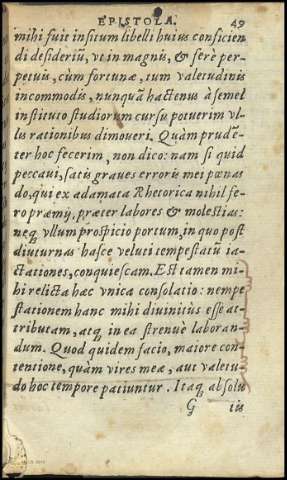 EPISTOLA. 49
mihi fuit insitum libelli huius conficien
di desideriũ, vt in magnis, & ferè per-
petuis, cùm fortunæ, tum valetudinis
incommodis, nunquã hactenus à semel
instituto studiorum cursu potuerim vl-
lis rationibus dimoueri. Quàm prudẽ-
ter hoc fecerim, non dico: nam si quid
peccaui, satis graues erroris mei pœnas
do, qui ex adamata Rhetorica nihil fe-
ro præmij, præter labores & molestias:
neq; vllum prospicio portum, in quo post
diuturnas hasce veluti tempestatũ ia-
ctationes, conquiescam. Est tamen mi-
hi relicta hæc vnica consolatio: nempe
stationem hanc mihi diuinitùs esse at-
tributam, atq; in ea strenuè laboran-
dum. Quod quidem facio, maiore con-
tentione, quàm vires meæ, aut valetu-
do hoc tempore patiuntur. Itaq; absolu
G iis